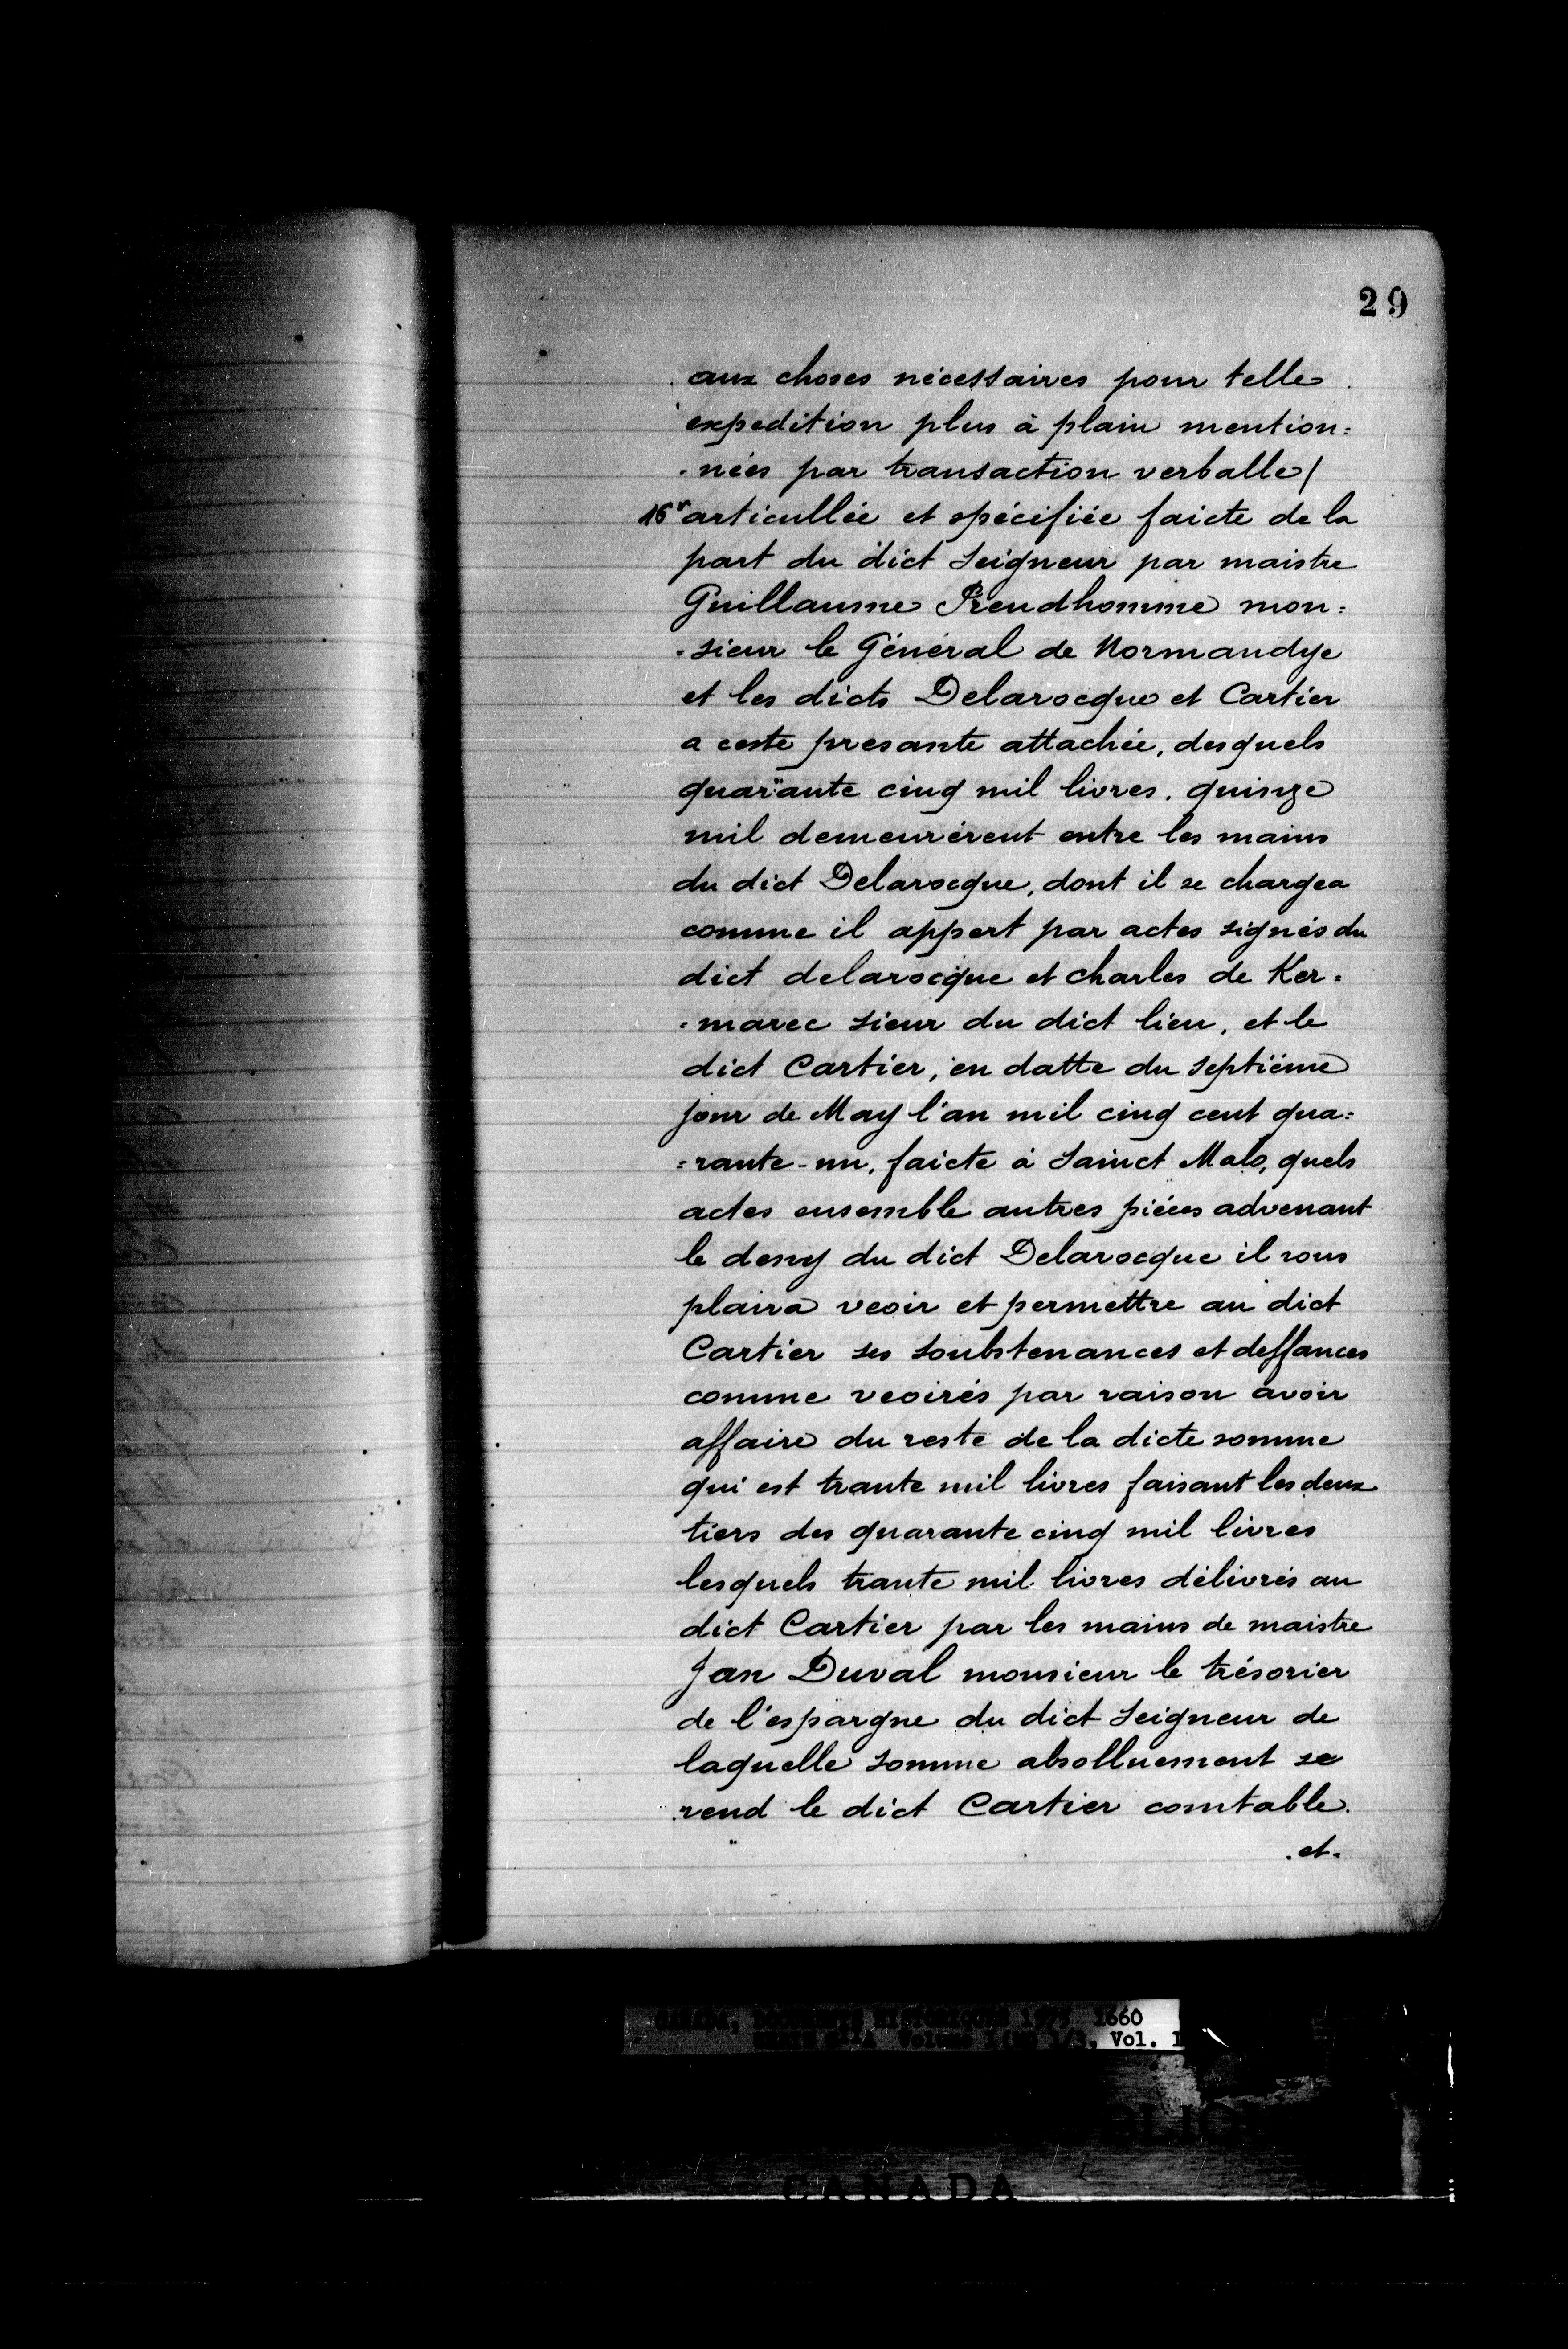 29
aux choses nécessaires pour telle
expedition plus à plain mention=
=nées par transaction verballe/
16r articullée et spécifiée faicte de la
part du dict Seigneur par maistre
Guillaume Preudhomme mon=
=sieur le Général de Normandye
et les dicts Delarocque et Cartier
a ceste presante attachée, desquels
quarante cinq mil livres, quinze
mil demeurèrent entre les mains
du dict Delarocque, dont il se chargea
comme il appert par actes signés du
dict delarocque et Charles de Ker=
=marec sieur du dict lieu, et le
dict Cartier, en datte du septième
jour de May l'an mil cinq cent qua=
=rante-un, faicte à Sainct Malo, quels
actes ensemble autres pièces advenant
le deny du dict Delarocque il vous
plaira veoir et permettre au dict
Cartier ses soubstenances et deffances
comme veoirés par raison avoir
affaire du reste de la dicte somme
qui est trante mil livres faisant les deux
tiers des quarante cinq mil livres
lesquels trante mil livres délivrés au
dict Cartier par les mains de maistre
Jan Duval monsieur le trésorier
de l'espargne du dict Seigneur de
laquelle somme absolluement se
rend le dict Cartier comtable.
.et.
1660
Vol. 1
CANADA